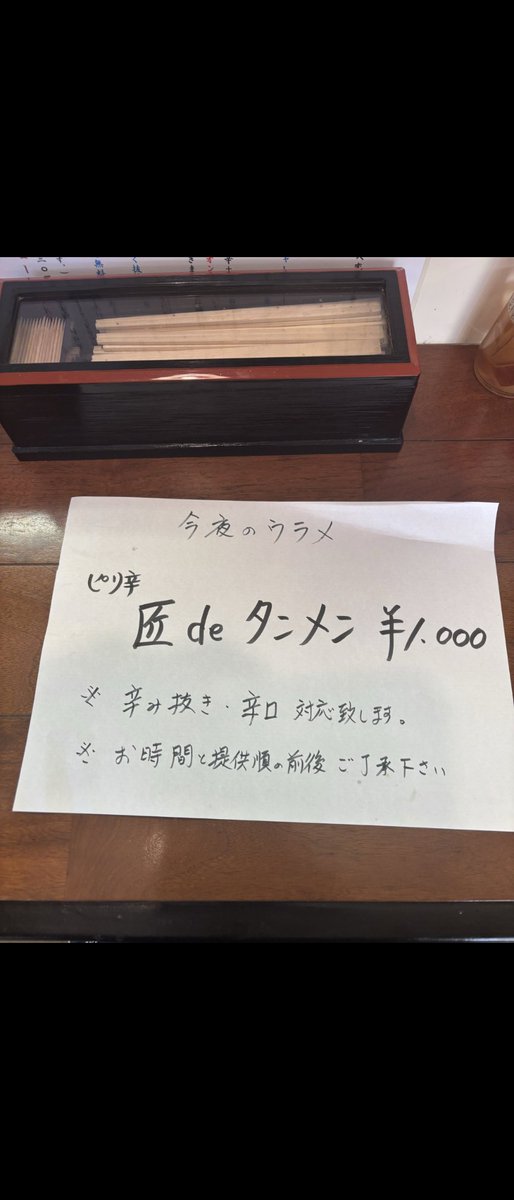 今夜のウラメ
ピリ辛
匠 de タンメン ¥1.000
※ 辛み抜き・辛口 対応致します。
※ お時間と提供順の前後 ご了承下さい